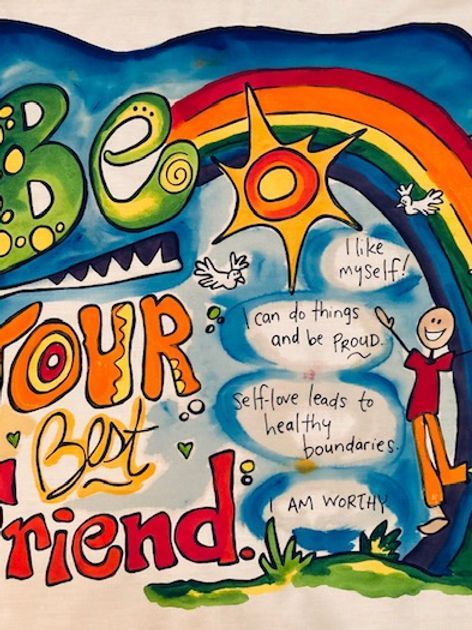 Be
YOUR
Best
Friend.
I like
myself!
I can do things
and be PROUD.
Self-love leads to
healthy
boundaries.
I AM WORTHY